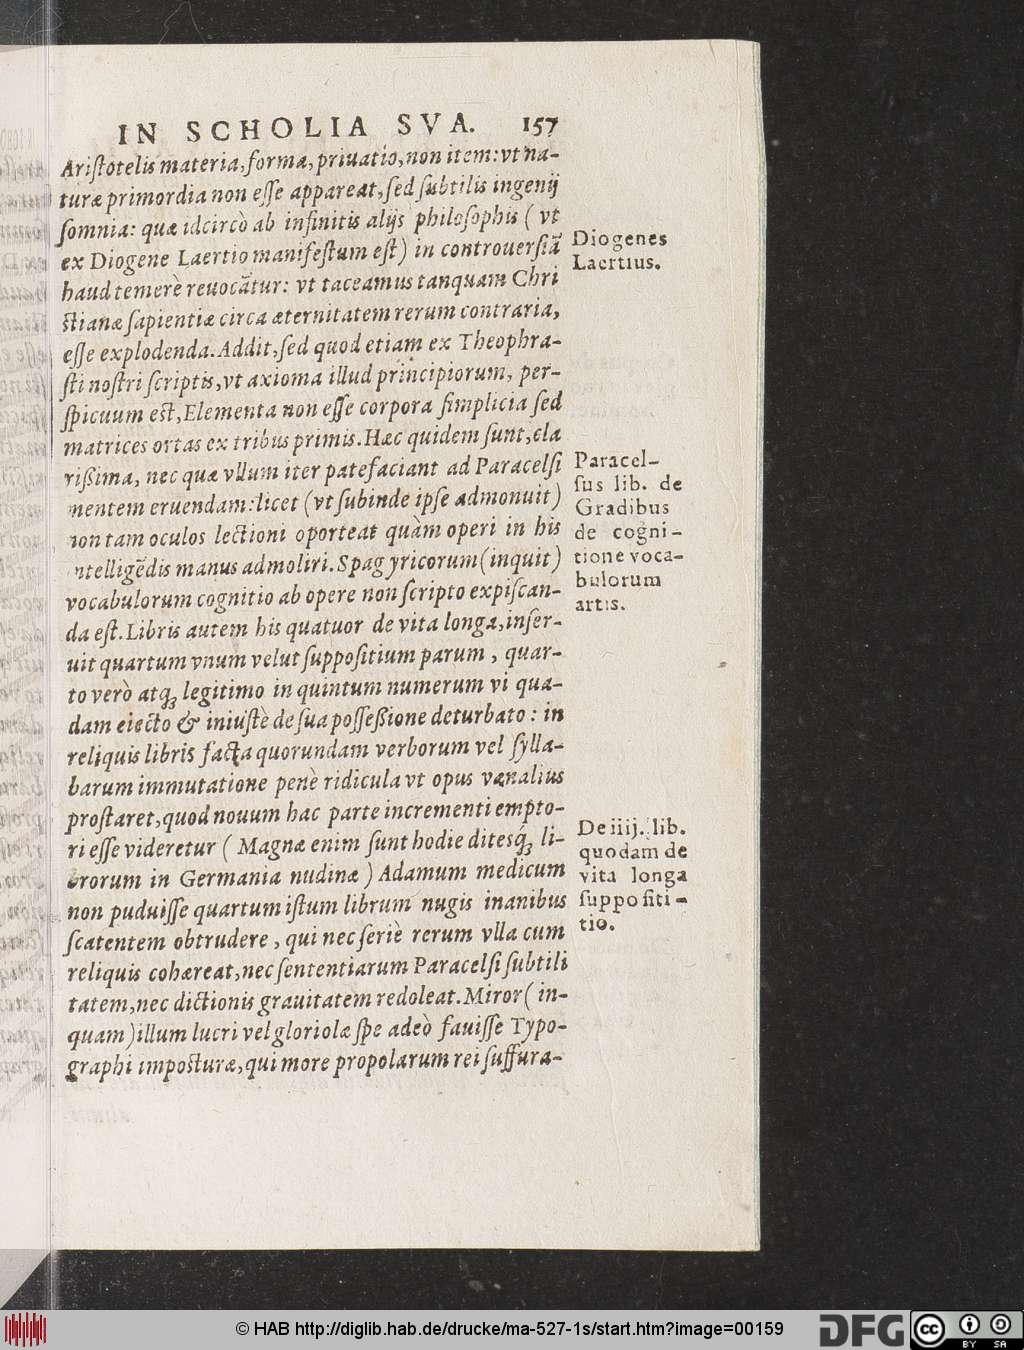 IN SCHOLIA SVA. 157
Ariſtotelis materia, forma, priuatio, non item: vt na-
turæ primordia non eſſe appareat, ſed ſubtilis ingenij
ſomnia: quæ idcircò ab infinitis alijs philoſophis ( vt
ex Diogene Laertio manifeſtum eſt) in controuerſiā
haud temerè reuocātur: vt taceamus tanquam Chri
ſtianæ ſapientiæ circa æternitatem rerum contraria,
eſſe explodenda. Addit, ſed quod etiam ex Theophra-
ſti noſtri ſcriptis, vt axioma illud principiorum, per-
ſpicuum eſt, Elementa non eſſe corpora ſimplicia ſed
matrices ortas ex tribus primis. Hæc quidem ſunt, cla
rißima, nec quæ vllum iter patefaciant ad Paracelſi
mentem eruendam: licet (vt ſubinde ipſe admonuit)
non tam oculos lectioni oporteat quàm operi in his
intelligēdis manus admoliri. Spagyricorum (inquit)
vocabulorum cognitio ab opere non ſcripto expiſcan-
da eſt. Libris autem his quatuor de vita longa, inſer-
uit quartum vnum velut ſuppoſitium parum, quar-
to verò atq́ꝫ legitimo in quintum numerum vi qua-
dam eiecto & iniuſtè de ſua poſſeßione deturbato: in
reliquis libris facta quorundam verborum vel ſylla-
barum immutatione penè ridicula vt opus vænalius
proſtaret, quod nouum hac parte incrementi empto-
ri eſſe videretur ( Magnæ enim ſunt hodie ditesq́ꝫ li-
brorum in Germania nudinæ ) Adamum medicum
non puduiſſe quartum iſtum librum nugis inanibus
ſcatentem obtrudere, qui nec ſeriè rerum vlla cum
reliquis cohæreat, nec ſententiarum Paracelſi ſubtili
tatem, nec dictionis grauitatem redoleat. Miror ( in-
quam) illum lucri vel gloriolæ ſpe adeò fauiſſe Typo-
graphi impoſturæ, qui more propolarum rei ſuffura-
Diogenes
Laertius.
Paracel-
ſus lib. de
Gradibus
de cogni-
tione voca-
bulorum
artis.
De iiij. lib.
quodam de
vita longa
ſuppoſiti-
tio.
© HAB http://diglib.hab.de/drucke/ma-527-1s/start.htm?image=00159
DFG
cc
BY SA